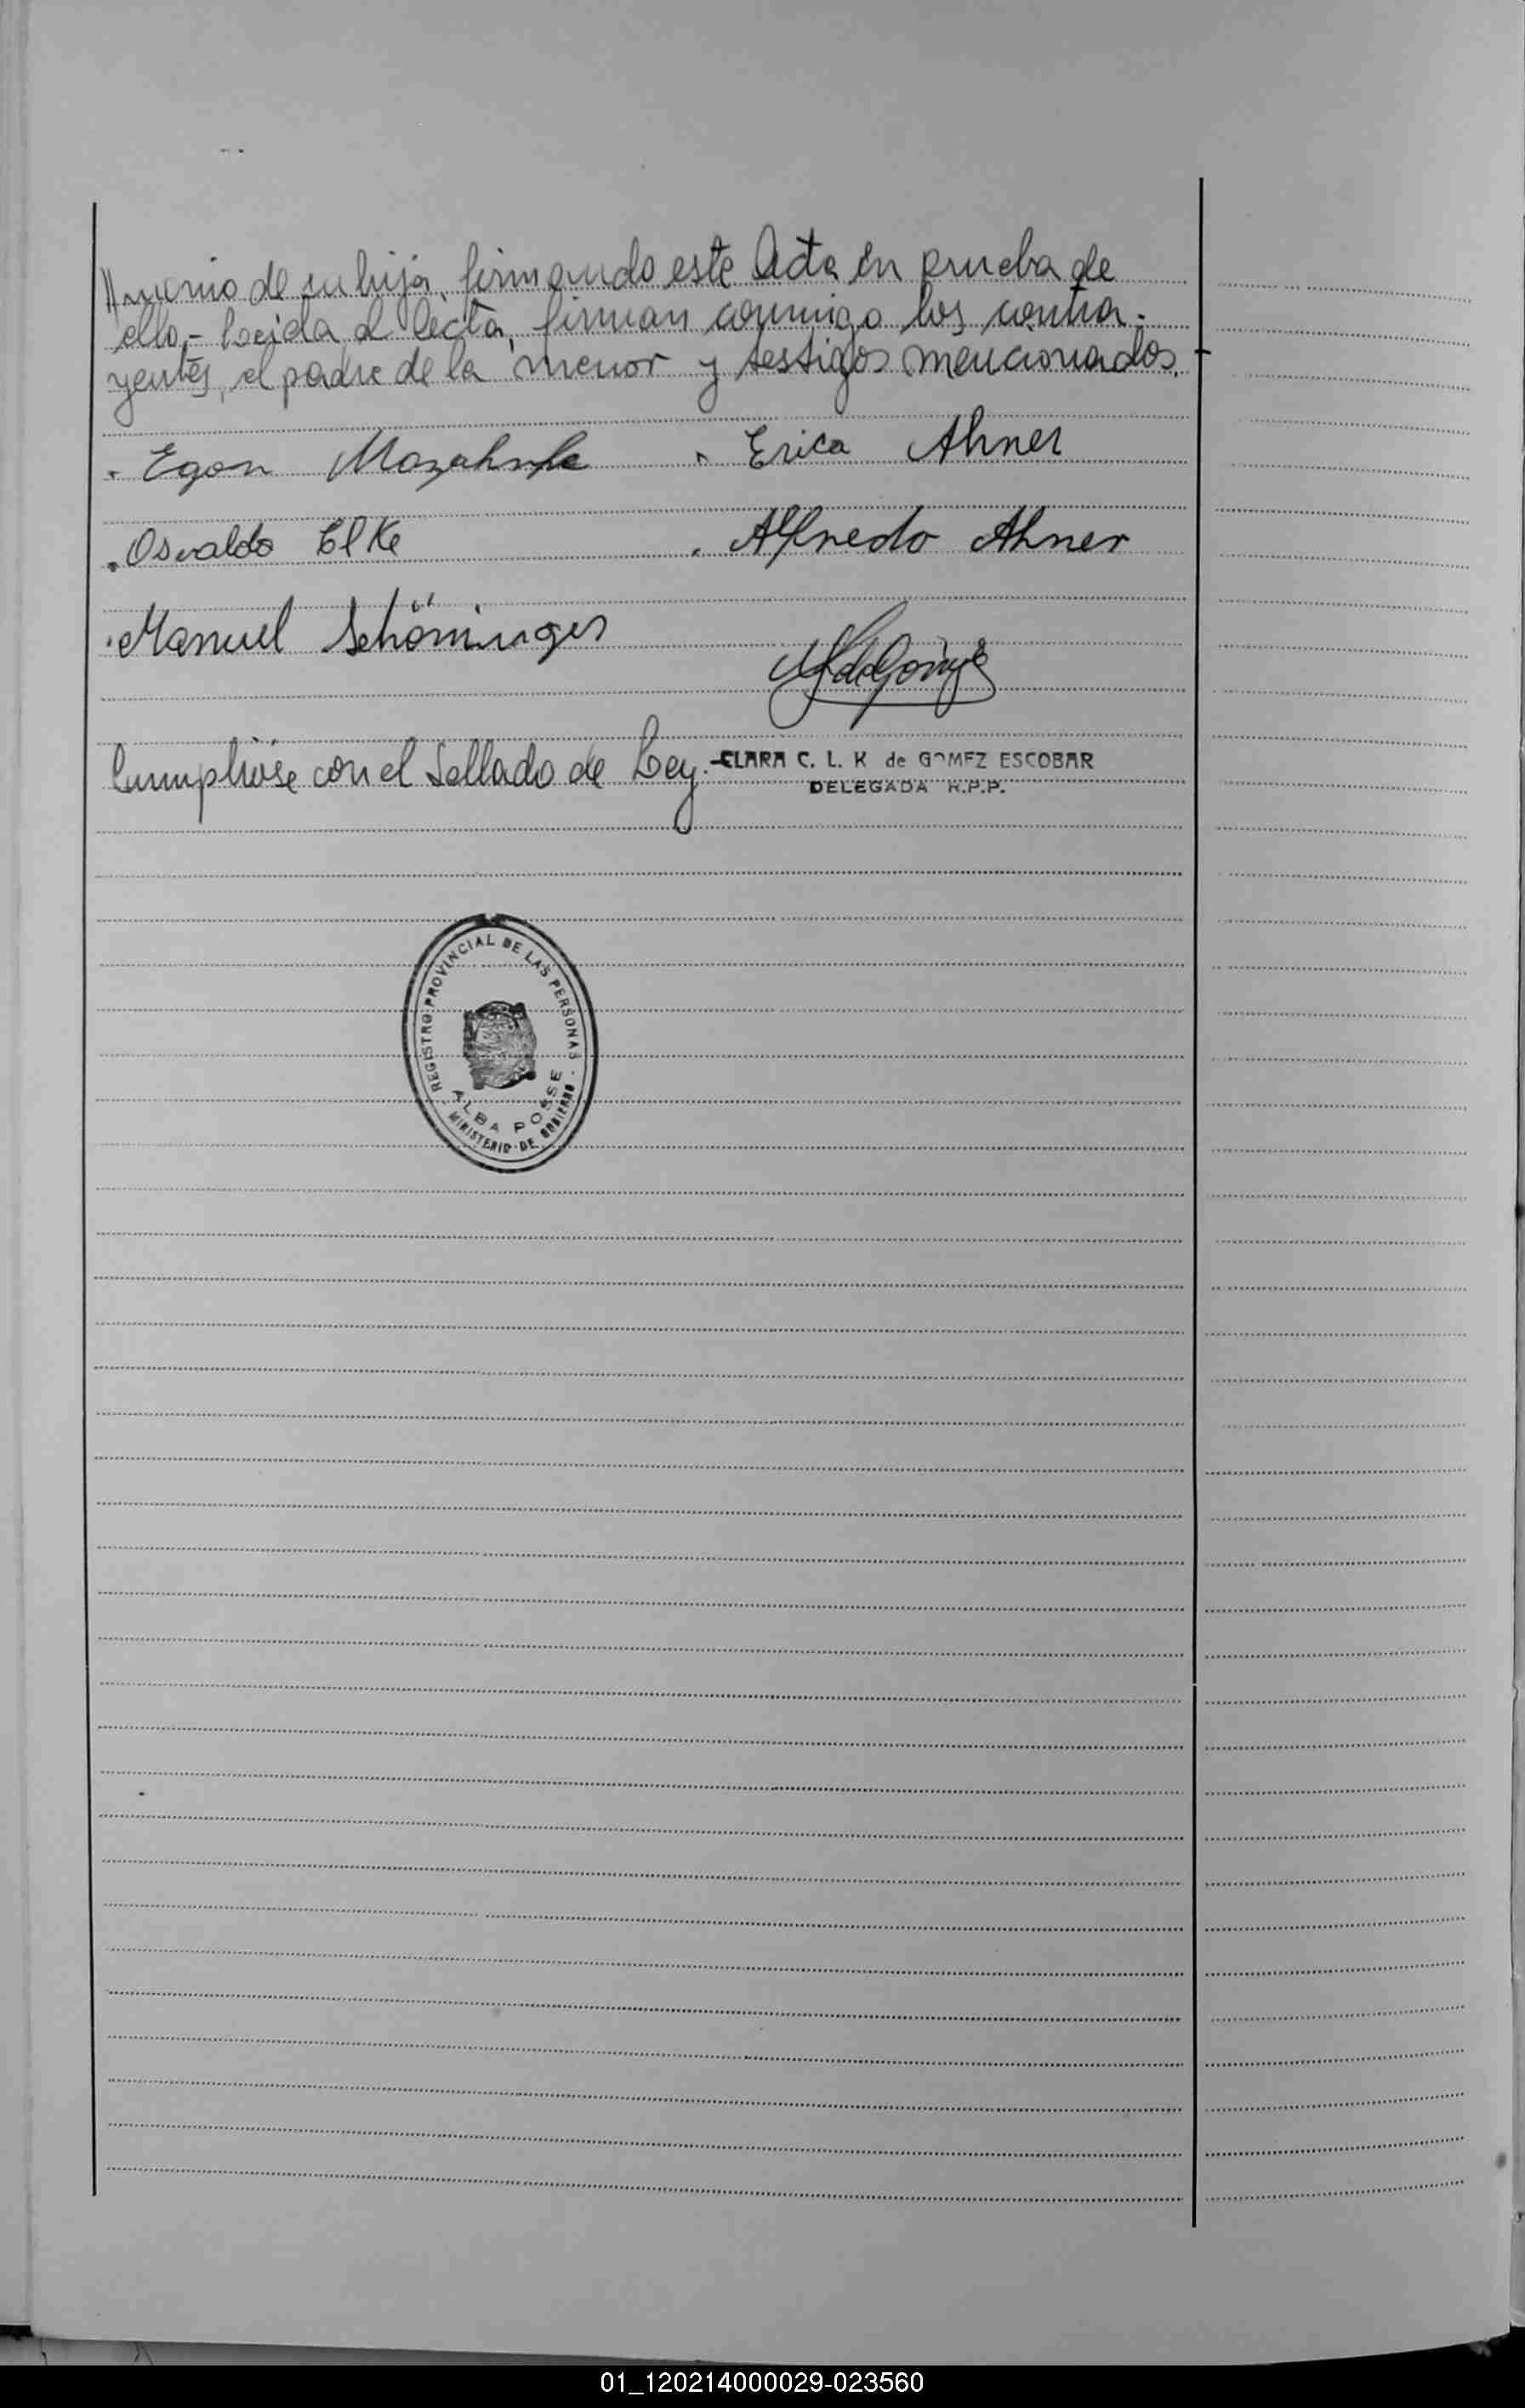 //monio de su hija, firmando este Acta en prueba de
ello.- Leída el Acta, firman conmigo los contra-
yentes, el padre de la menor y testigos mencionados.
Egon
Erica Ahner
Osvaldo Elke
Alfredo Ahner
Manuel Schöninger
Cumplióse con el Sellado de Ley.-
CLARA C. L. K de GOMEZ ESCOBAR
DELEGADA R.P.P.
REGISTRO PROVINCIAL DE LAS PERSONAS
ALBA POSSE
MINISTERIO DE GOBIERNO
01_120214000029-023560